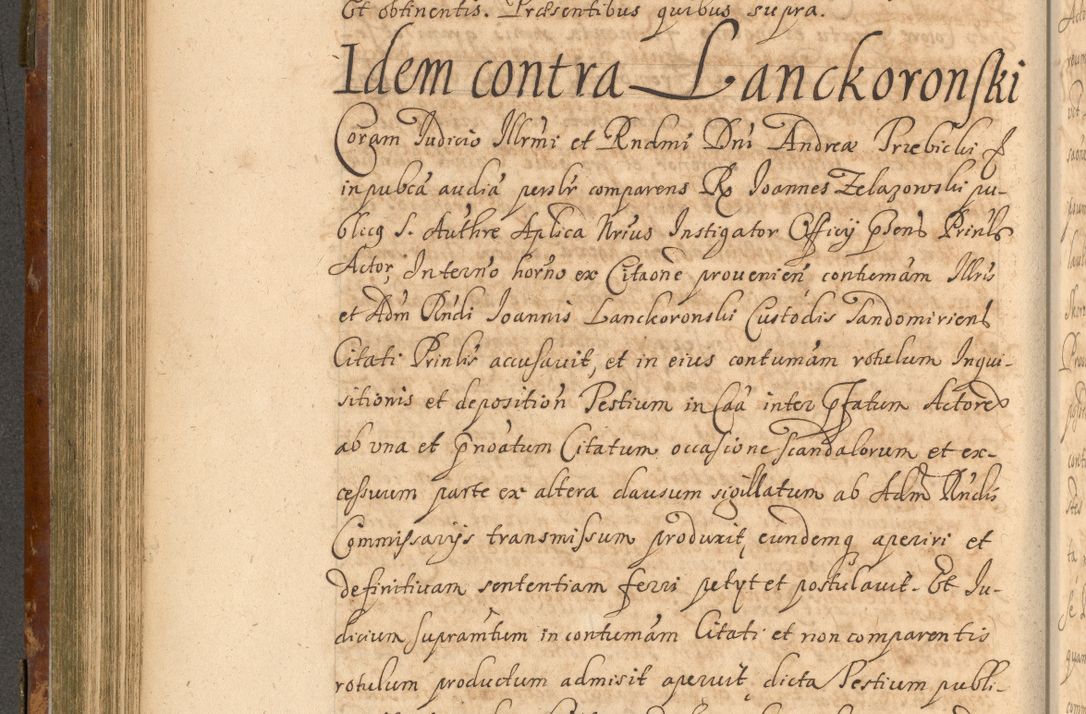 Et obtinentis. Præsentibus quibus supra.
Idem contra Lanckoronski
Coram Iudicio Illrmi et Rndmi Dni Andreæ Przebicki
in pubca audia persłr comparens Rx Ioannes Zelazowski pu-
blicq S. Authre Aplica Nrius Instigator Officy pñens Prinls
Actor, In terno horno ex Citaone provenien contumam Illris
et Adm Rndi Ioannis Lanckoronski Custodis Sandomiriens
Citati Prinlis accusavit, et in eius contumam rotulum Inqui-
sitionis et deposition Testium in Caa inter pfatum Actorem
ab vna et pnoatum Citatum occasione scandalorum et ex-
cessuum parte ex altera clausum sigillatum ab Adm Rndis
Commissarijs transmissum produxit, eundemq aperiri et
definitivam sententiam ferri petyt et postulavit. Et Iu-
dicium supramtum in contumam Citati et non comparentis
rotulum productum admisit aperuit, dicta Testium publi-